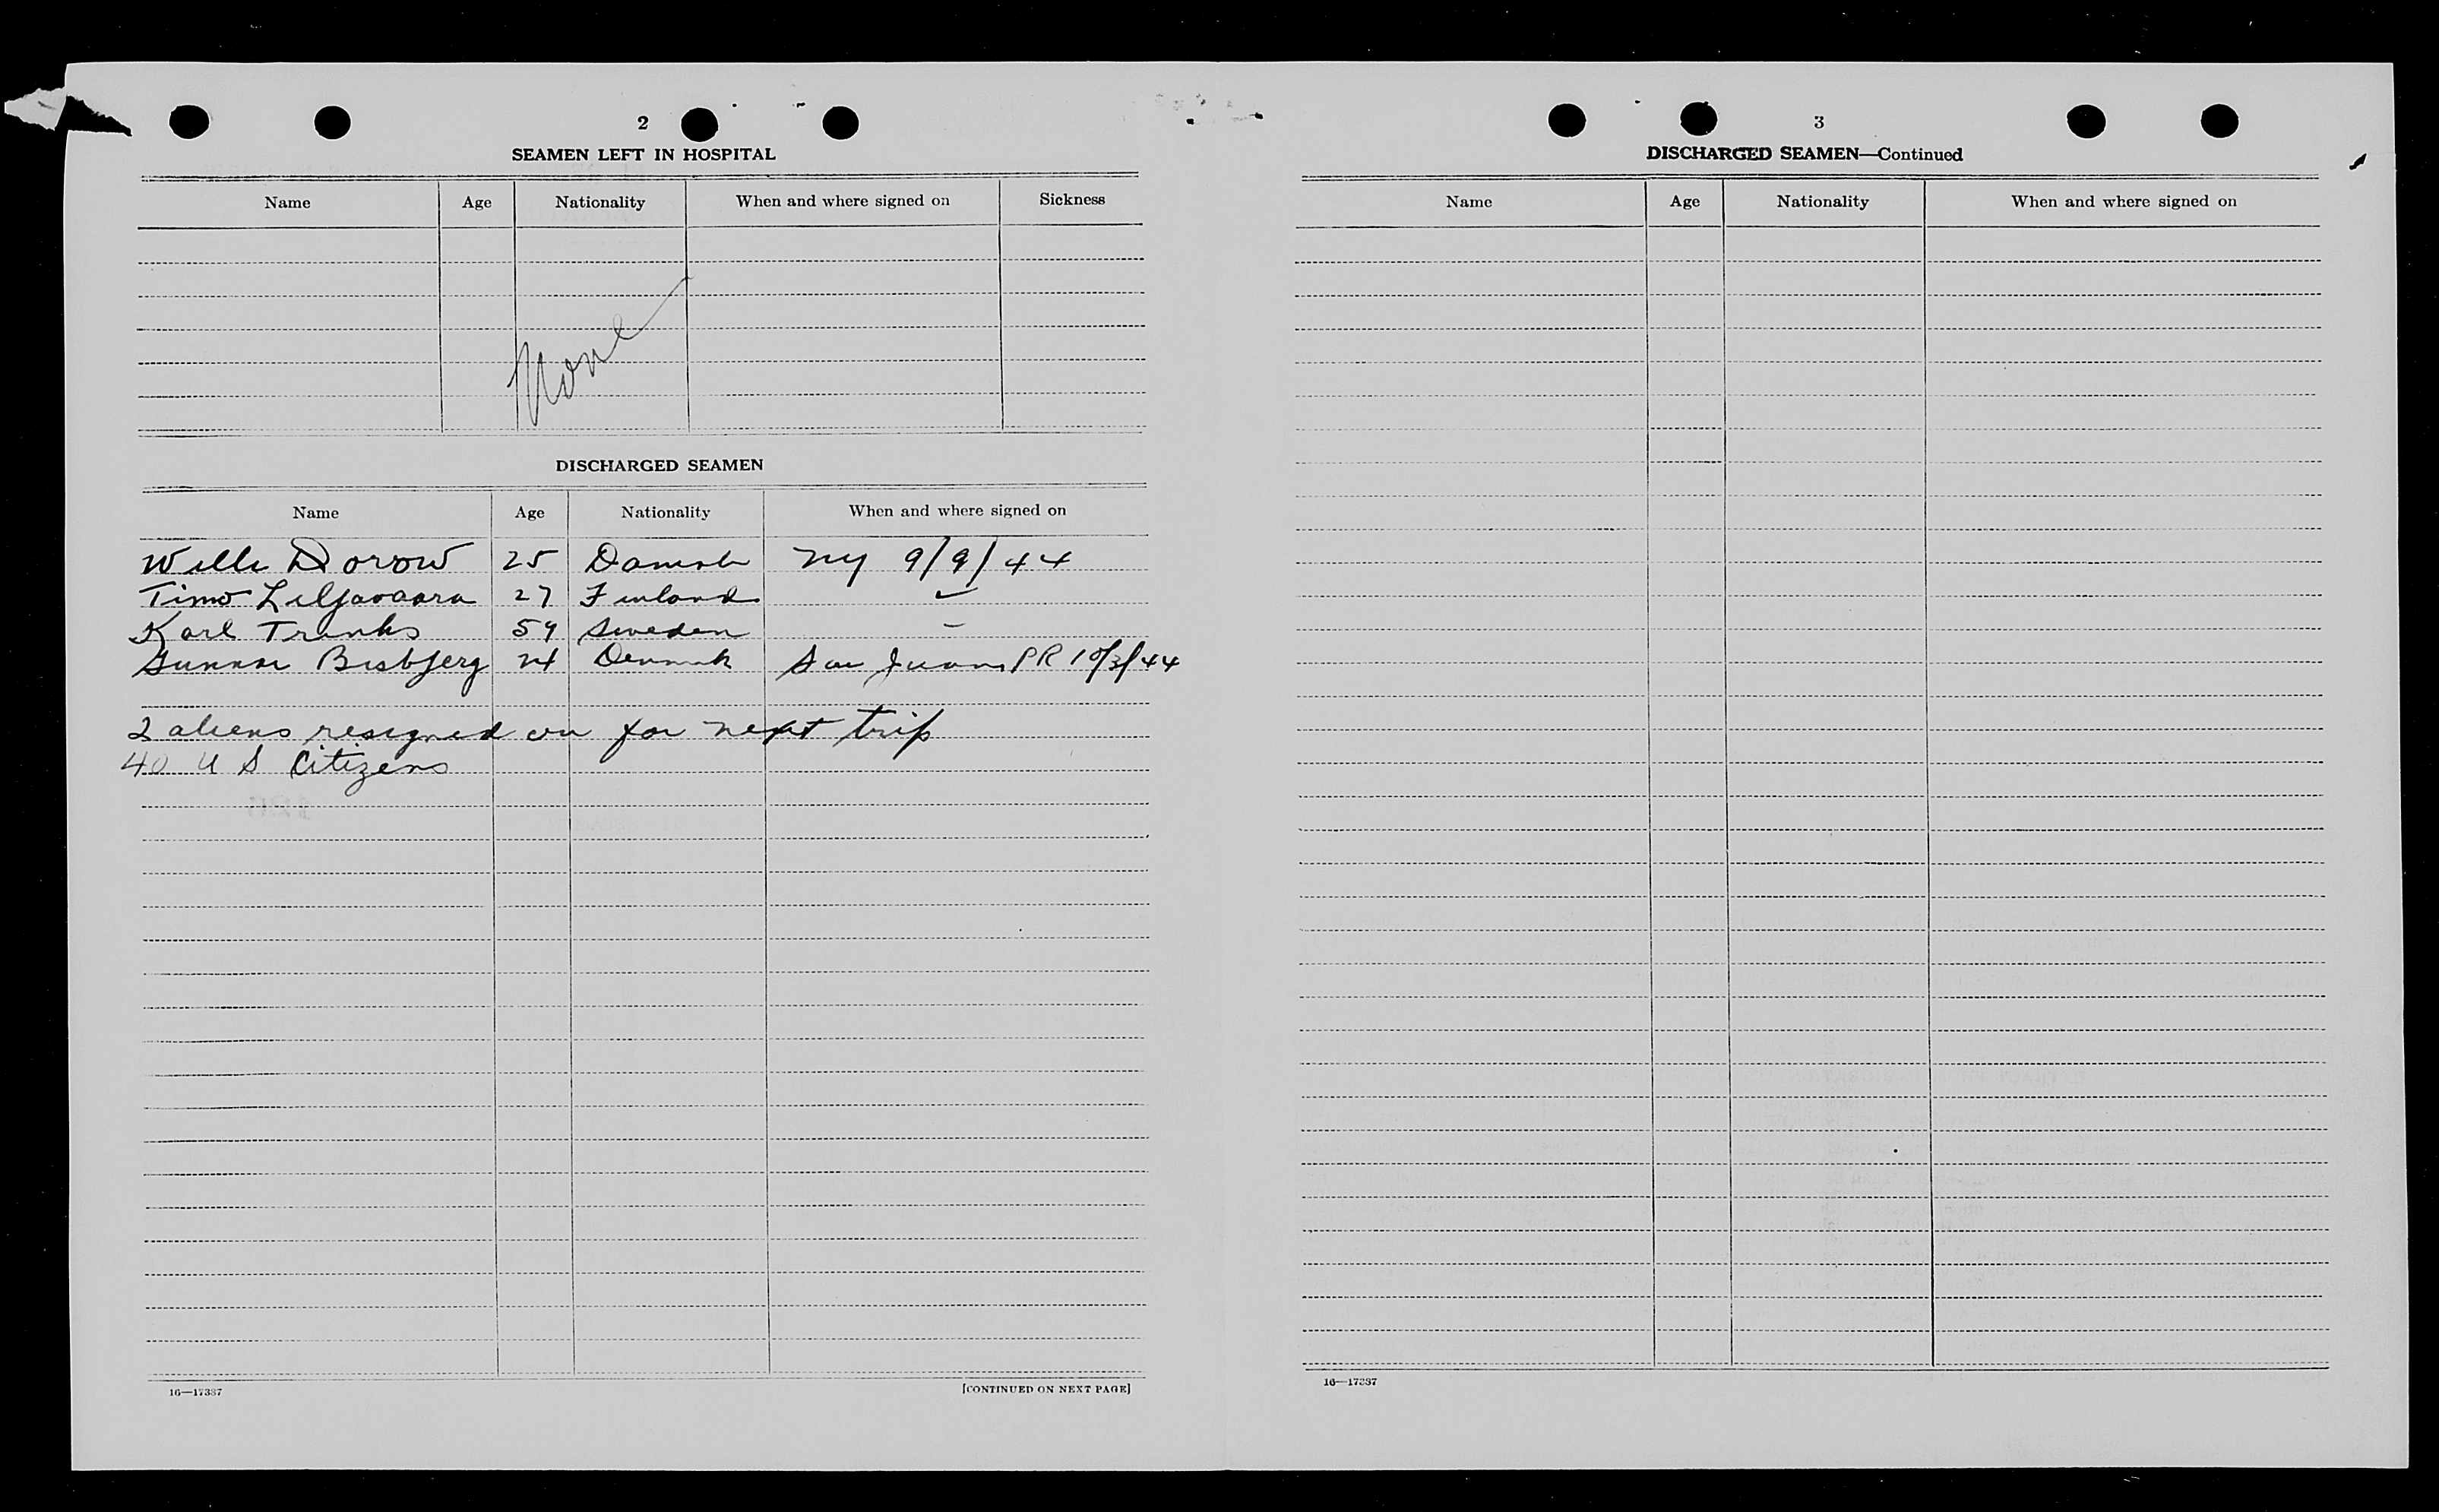 2
SEAMEN LEFT IN HOSPITAL
Name Age Nationality When and where signed on Sickness
None
DISCHARGED SEAMEN
Name Age Nationality When and where signed on
Willi Dorow 25 Danish NY 9/9/44
Timo Liljavaara 27 Finland ✓
Karl Trunks 59 Sweden –
Gunnar Bisbjerg 24 Denmark San Juan PR 10/3/44
2 aliens resigned on for next trip
40 U S Citizens
16—17337 [CONTINUED ON NEXT PAGE]
3
DISCHARGED SEAMEN—Continued
Name Age Nationality When and where signed on
16—17337